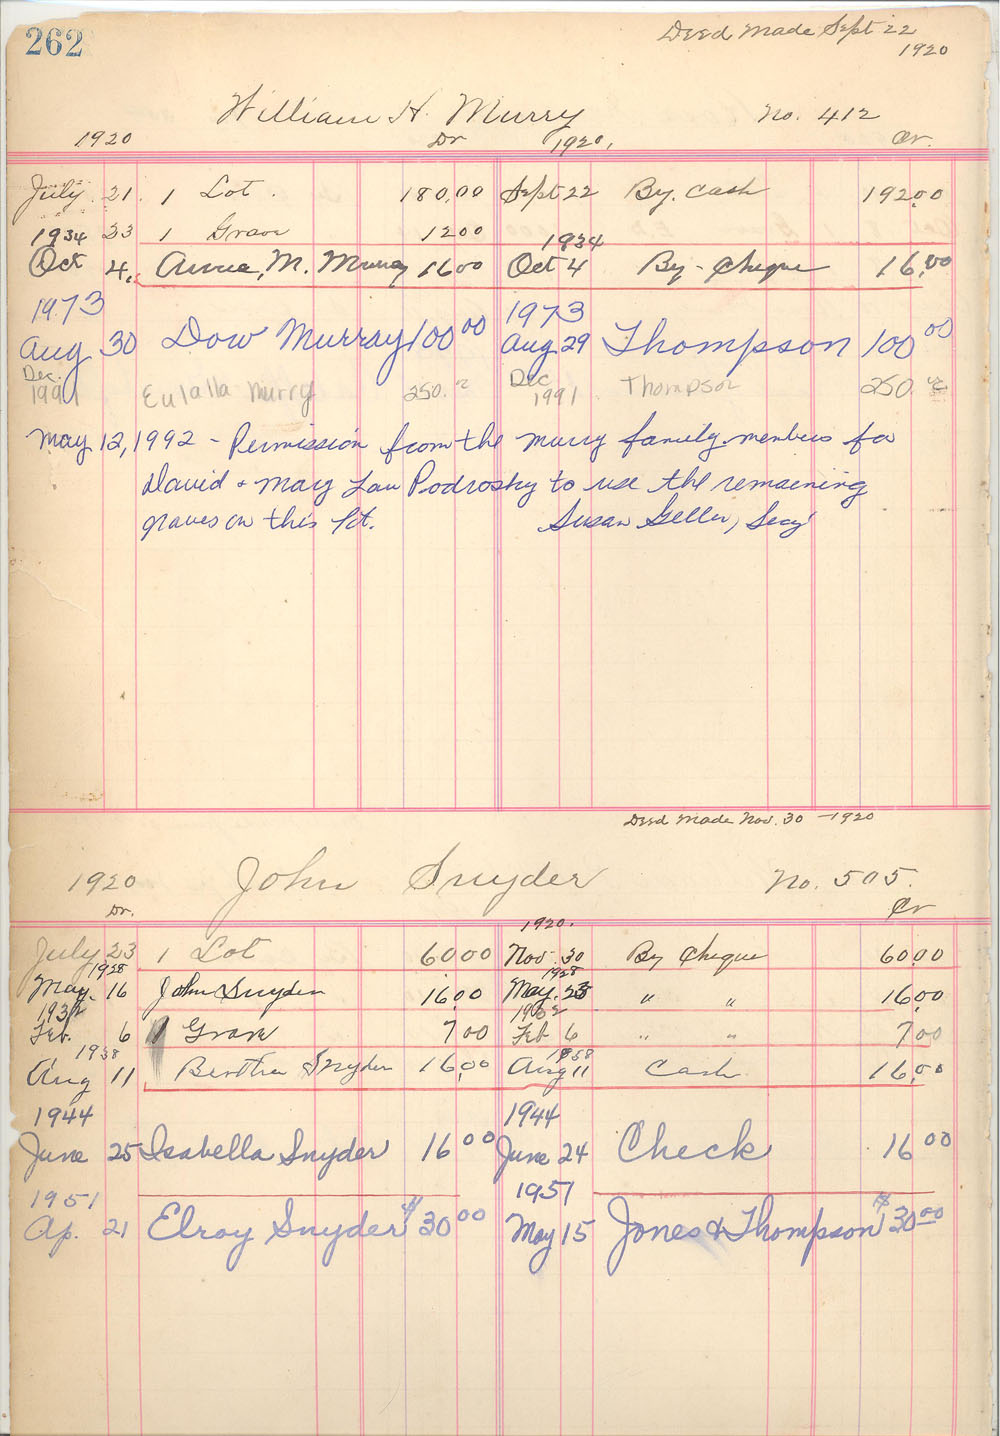 262
Deed Made Sept 22
1920
William H. Murry No. 412
1920 Dr 1920, Cr.
July 21 1 Lot. 180.00 Sept 22 By. Cash 192.00
23 1 Grave 12 00
1934 1934
Oct 4, Annie, M. Murray 16 00 Oct 4 By - Cheque 16,00
1973 1973
Aug 30 Dow Murray 100 00 Aug 29 Thompson 100 00
Dec. Dec
1991 Eulalla Murry 250. 1991 Thompson 250.
May 12, 1992 - Permission from the Murry family members for
David + Mary Lou Podrosky to use the remaining
graves on this lot. Susan Geller, Secy
Deed Made Nov. 30 - 1920
1920 John Snyder No. 505.
Dr. Cr
1920.
July 23 1 Lot 60 00 Nov. 30 By Cheque 60.00
1928 1928
May. 16 John Snyder 16.00 May. 23 " " 16.00
1932 1932
Feb. 6 1 Grave 7 00 Feb 6 " " 7 00
1938 1938
Aug 11 Bertha Snyder 16.00 Aug 11 Cash 16.00
1944 1944
June 25 Isabella Snyder 16 00 June 24 Check 16 00
1951 1951
Ap. 21 Elroy Snyder $30 00 May 15 Jones & Thompson $30 00